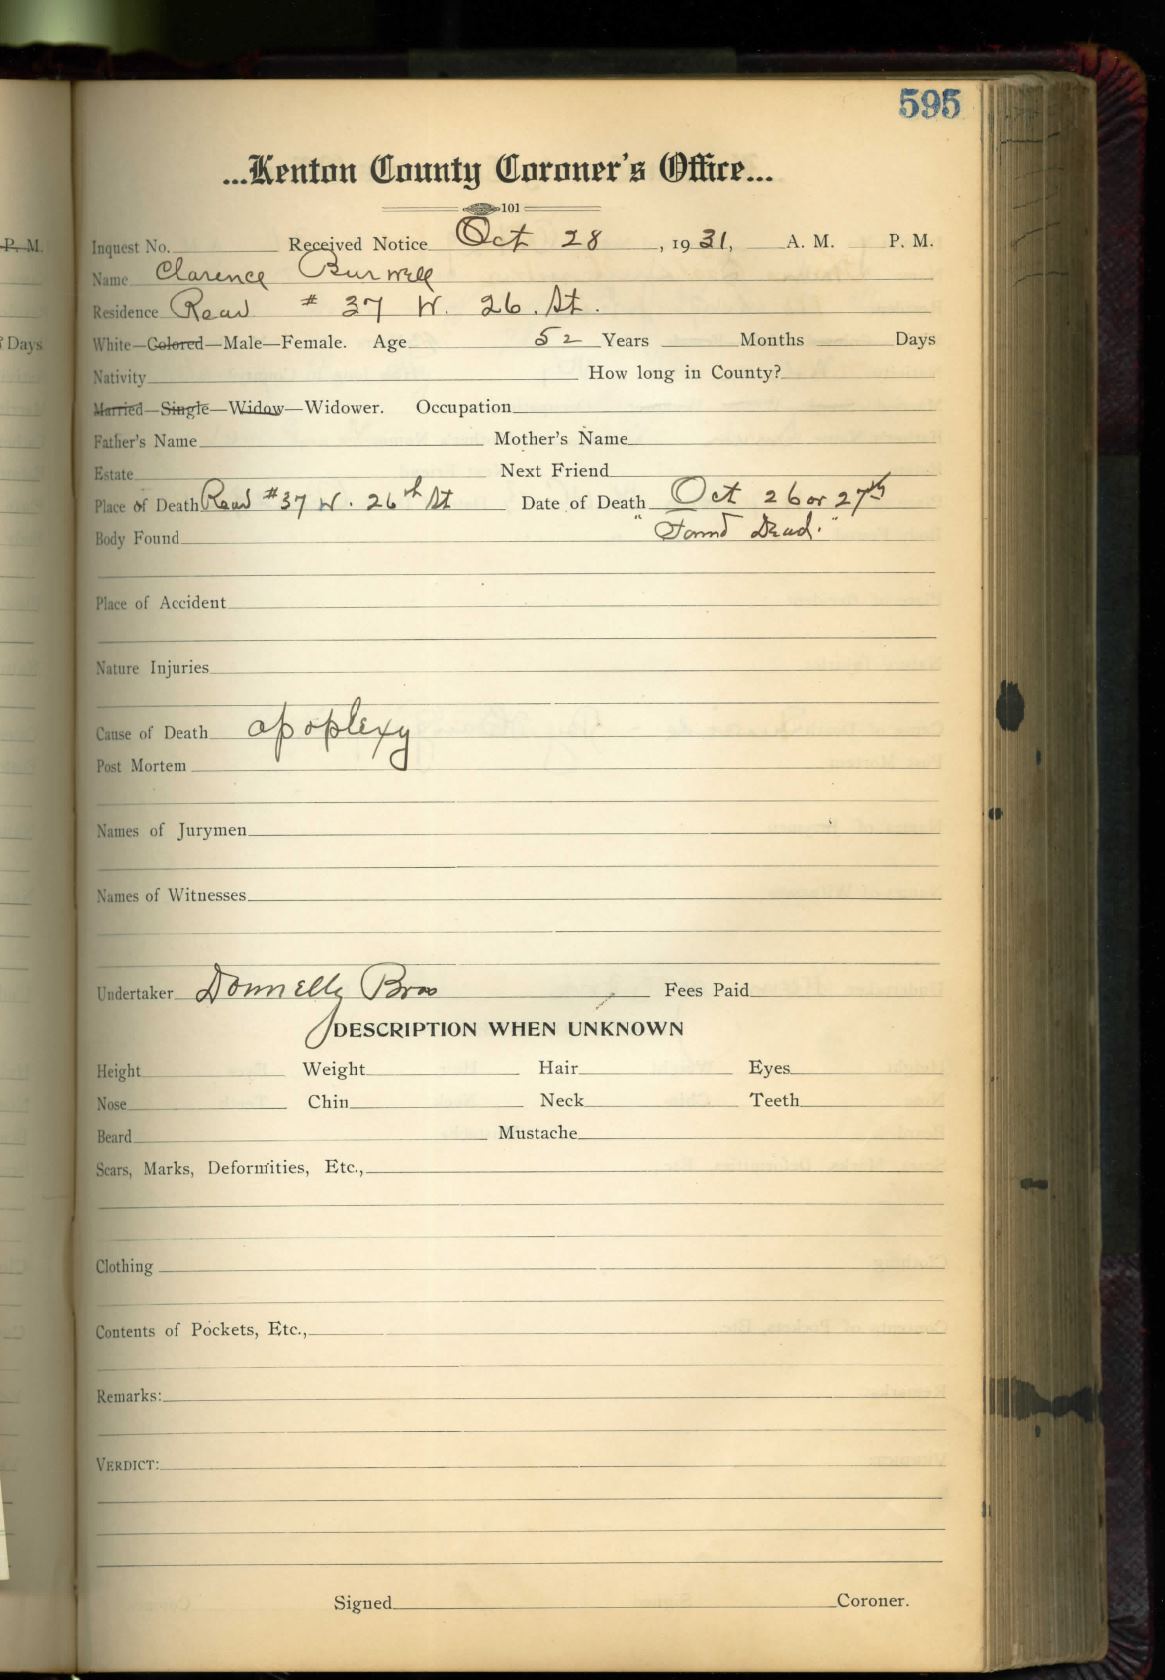 595
...Kenton County Coroner's Office...
101
P. M.
Inquest No. Received Notice Oct 28, 1931, A. M. P. M.
Name Clarence Burwell
Residence Rear # 37 W. 26. St.
Days
White—Colored—Male—Female. Age 52 Years Months Days
Nativity How long in County?
Married—Single—Widow—Widower. Occupation
Father's Name Mother's Name
Estate Next Friend
Place of Death Rear #37 W. 26th St Date of Death Oct 26 or 27th
Body Found "Found Dead."
Place of Accident
Nature Injuries
Cause of Death apoplexy
Post Mortem
Names of Jurymen
Names of Witnesses
Undertaker Donnelly Bros Fees Paid
DESCRIPTION WHEN UNKNOWN
Height Weight Hair Eyes
Nose Chin Neck Teeth
Beard Mustache
Scars, Marks, Deformities, Etc.,
Clothing
Contents of Pockets, Etc.,
Remarks:
VERDICT:
Signed Coroner.